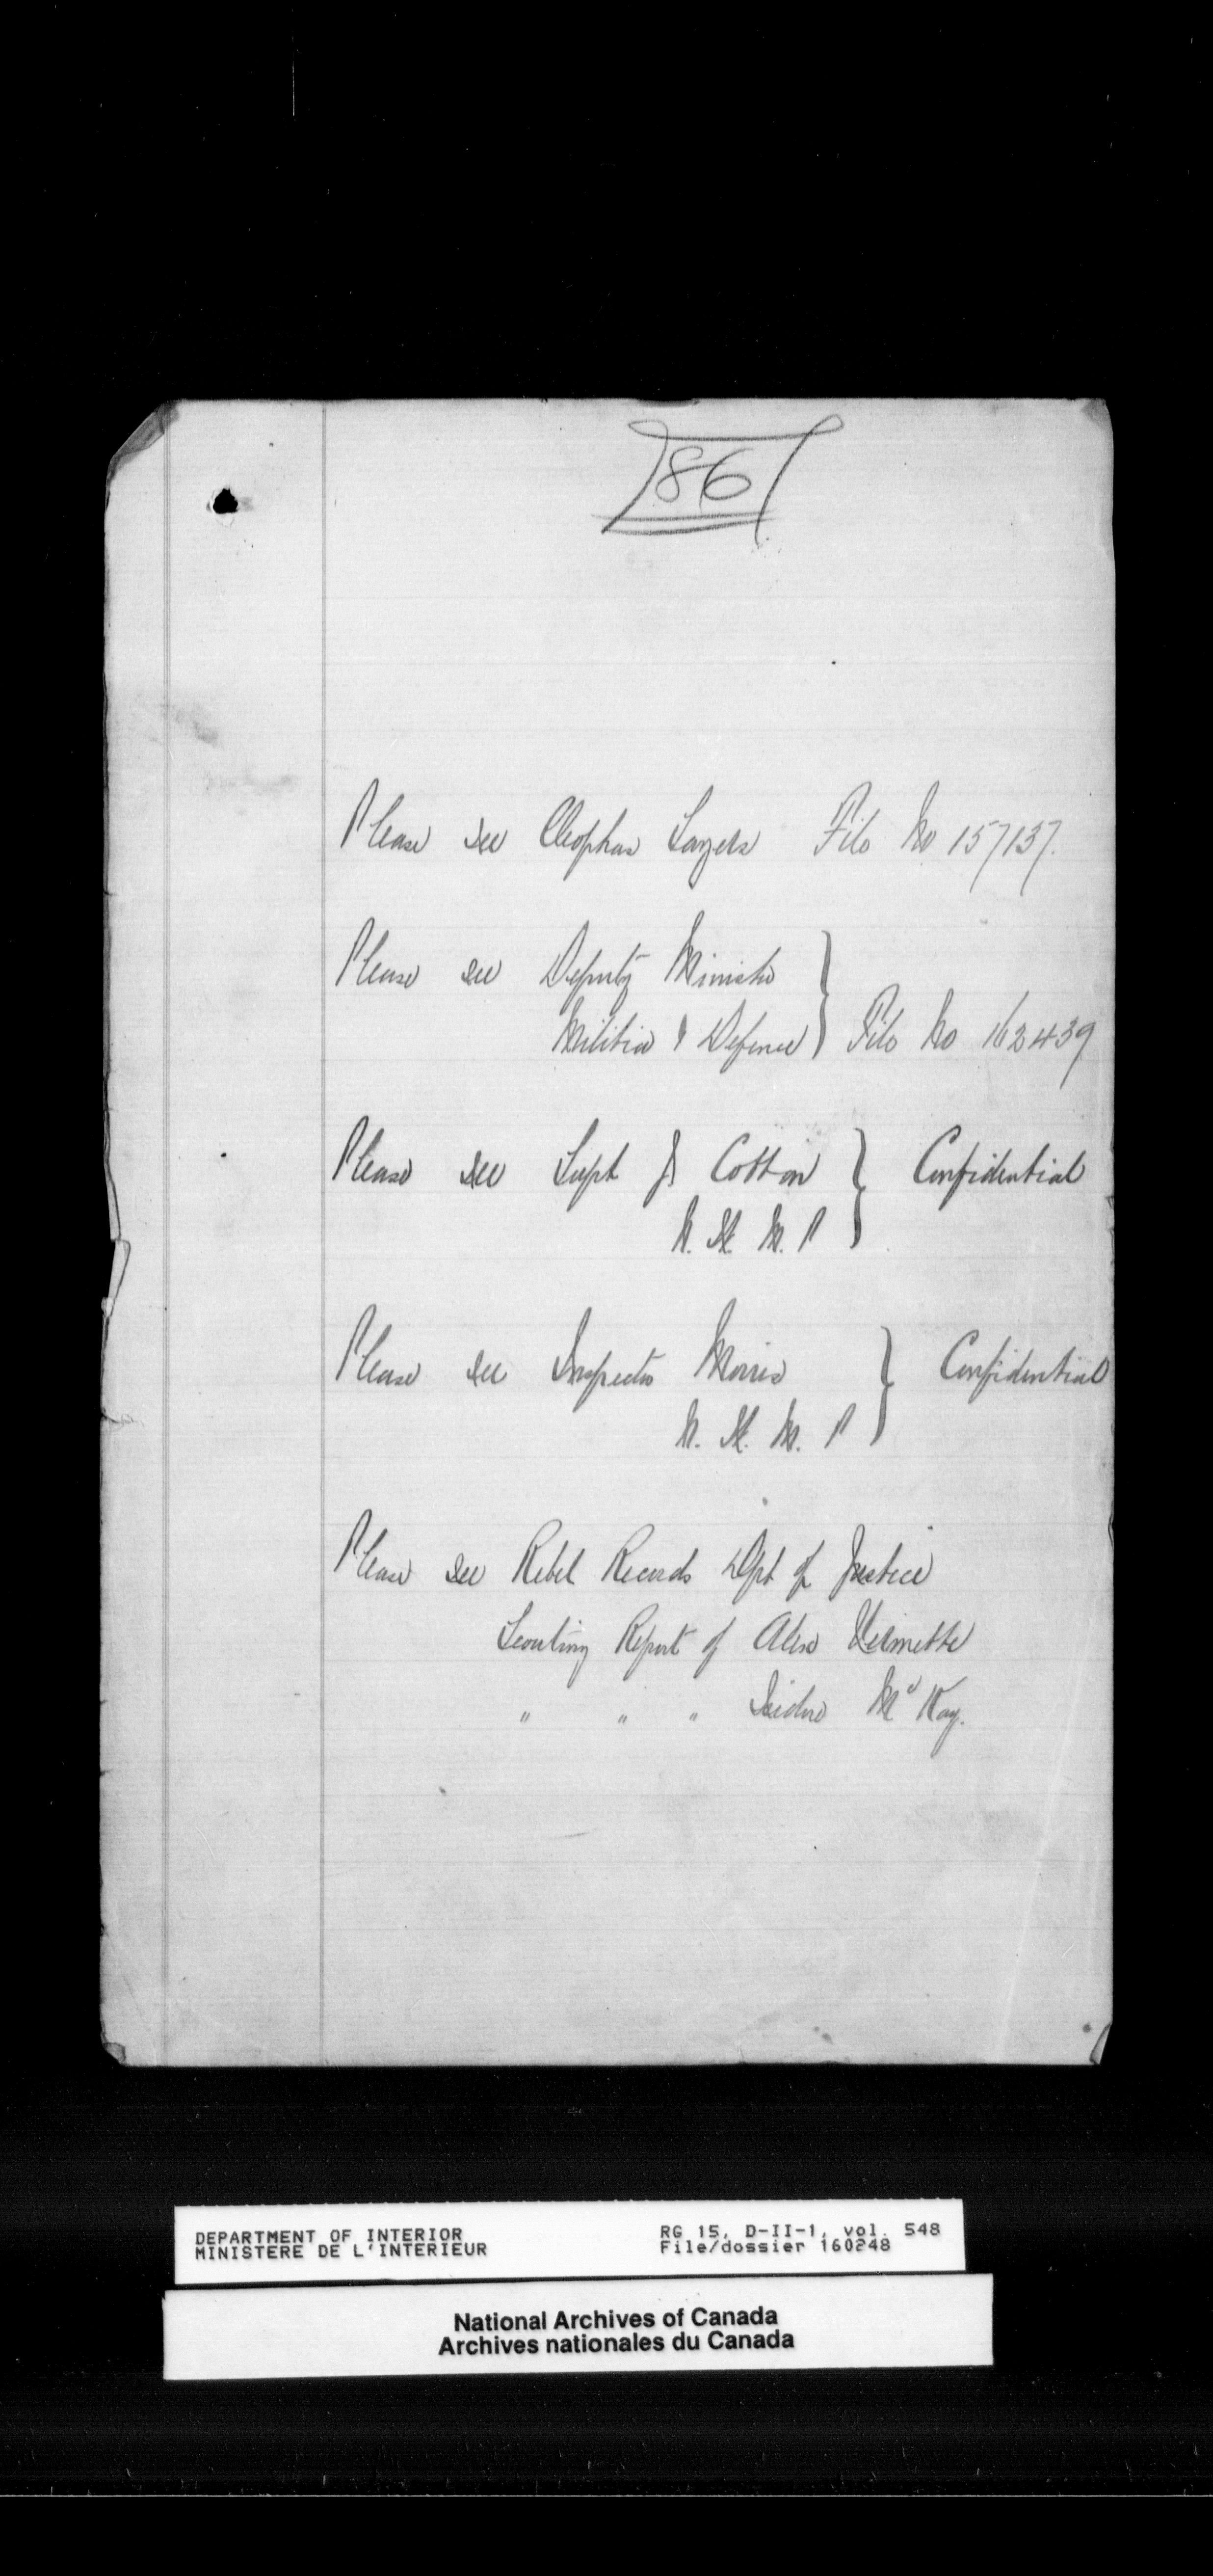 86
Please see Cleophas Sayers File No 157137.
Please see Deputy Minister
Militia & Defence } File No 162439
Please see Supt J Cotton } Confidential
N. W. M. P
Please see Inspector Morris } Confidential
N. W. M. P
Please see Rebel Records Dpt of Justice
Scouting Report of Alex Vermette
" " " Isidore Mc Kay.
DEPARTMENT OF INTERIOR RG 15, D-II-1, vol. 548
MINISTERE DE L'INTERIEUR File/dossier 160248
National Archives of Canada
Archives nationales du Canada